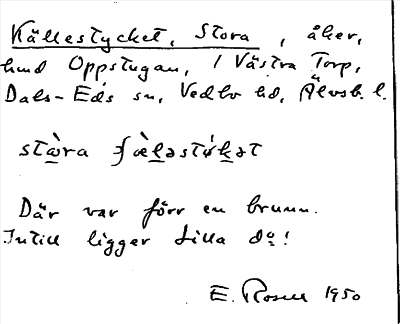 Källestycket, Stora, åker,
hmd Oppstugan, 1 Västra Torp,
Dals-Eds sn, Vedbo hd, Älvsb. l.
stɷ̀ra ʃæ̀lәstýkәt
Där var förr en brunn.
Intill ligger Lilla do!
E. Rosell 1950